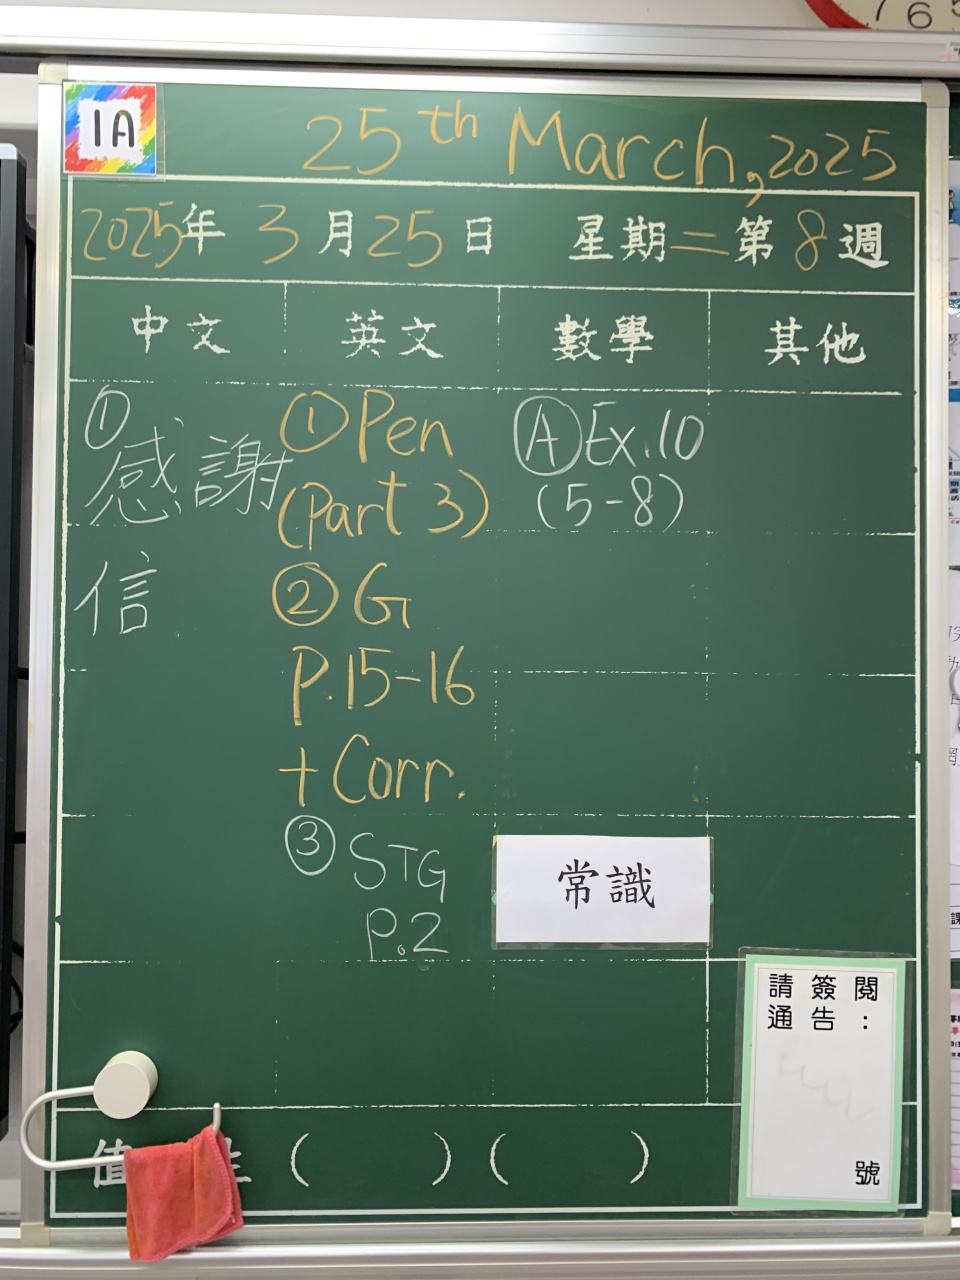 7 6 5
1A
25th March, 2025
2025年 3月25日 星期二 第8週
中文 英文 數學 其他
① 感謝
信
① Pen
(Part 3)
② G
P.15-16
+ Corr.
③ STG
P.2
Ⓐ Ex.10
(5-8)
常識
請簽閱
通告：
號
值 生 ( ) ( )